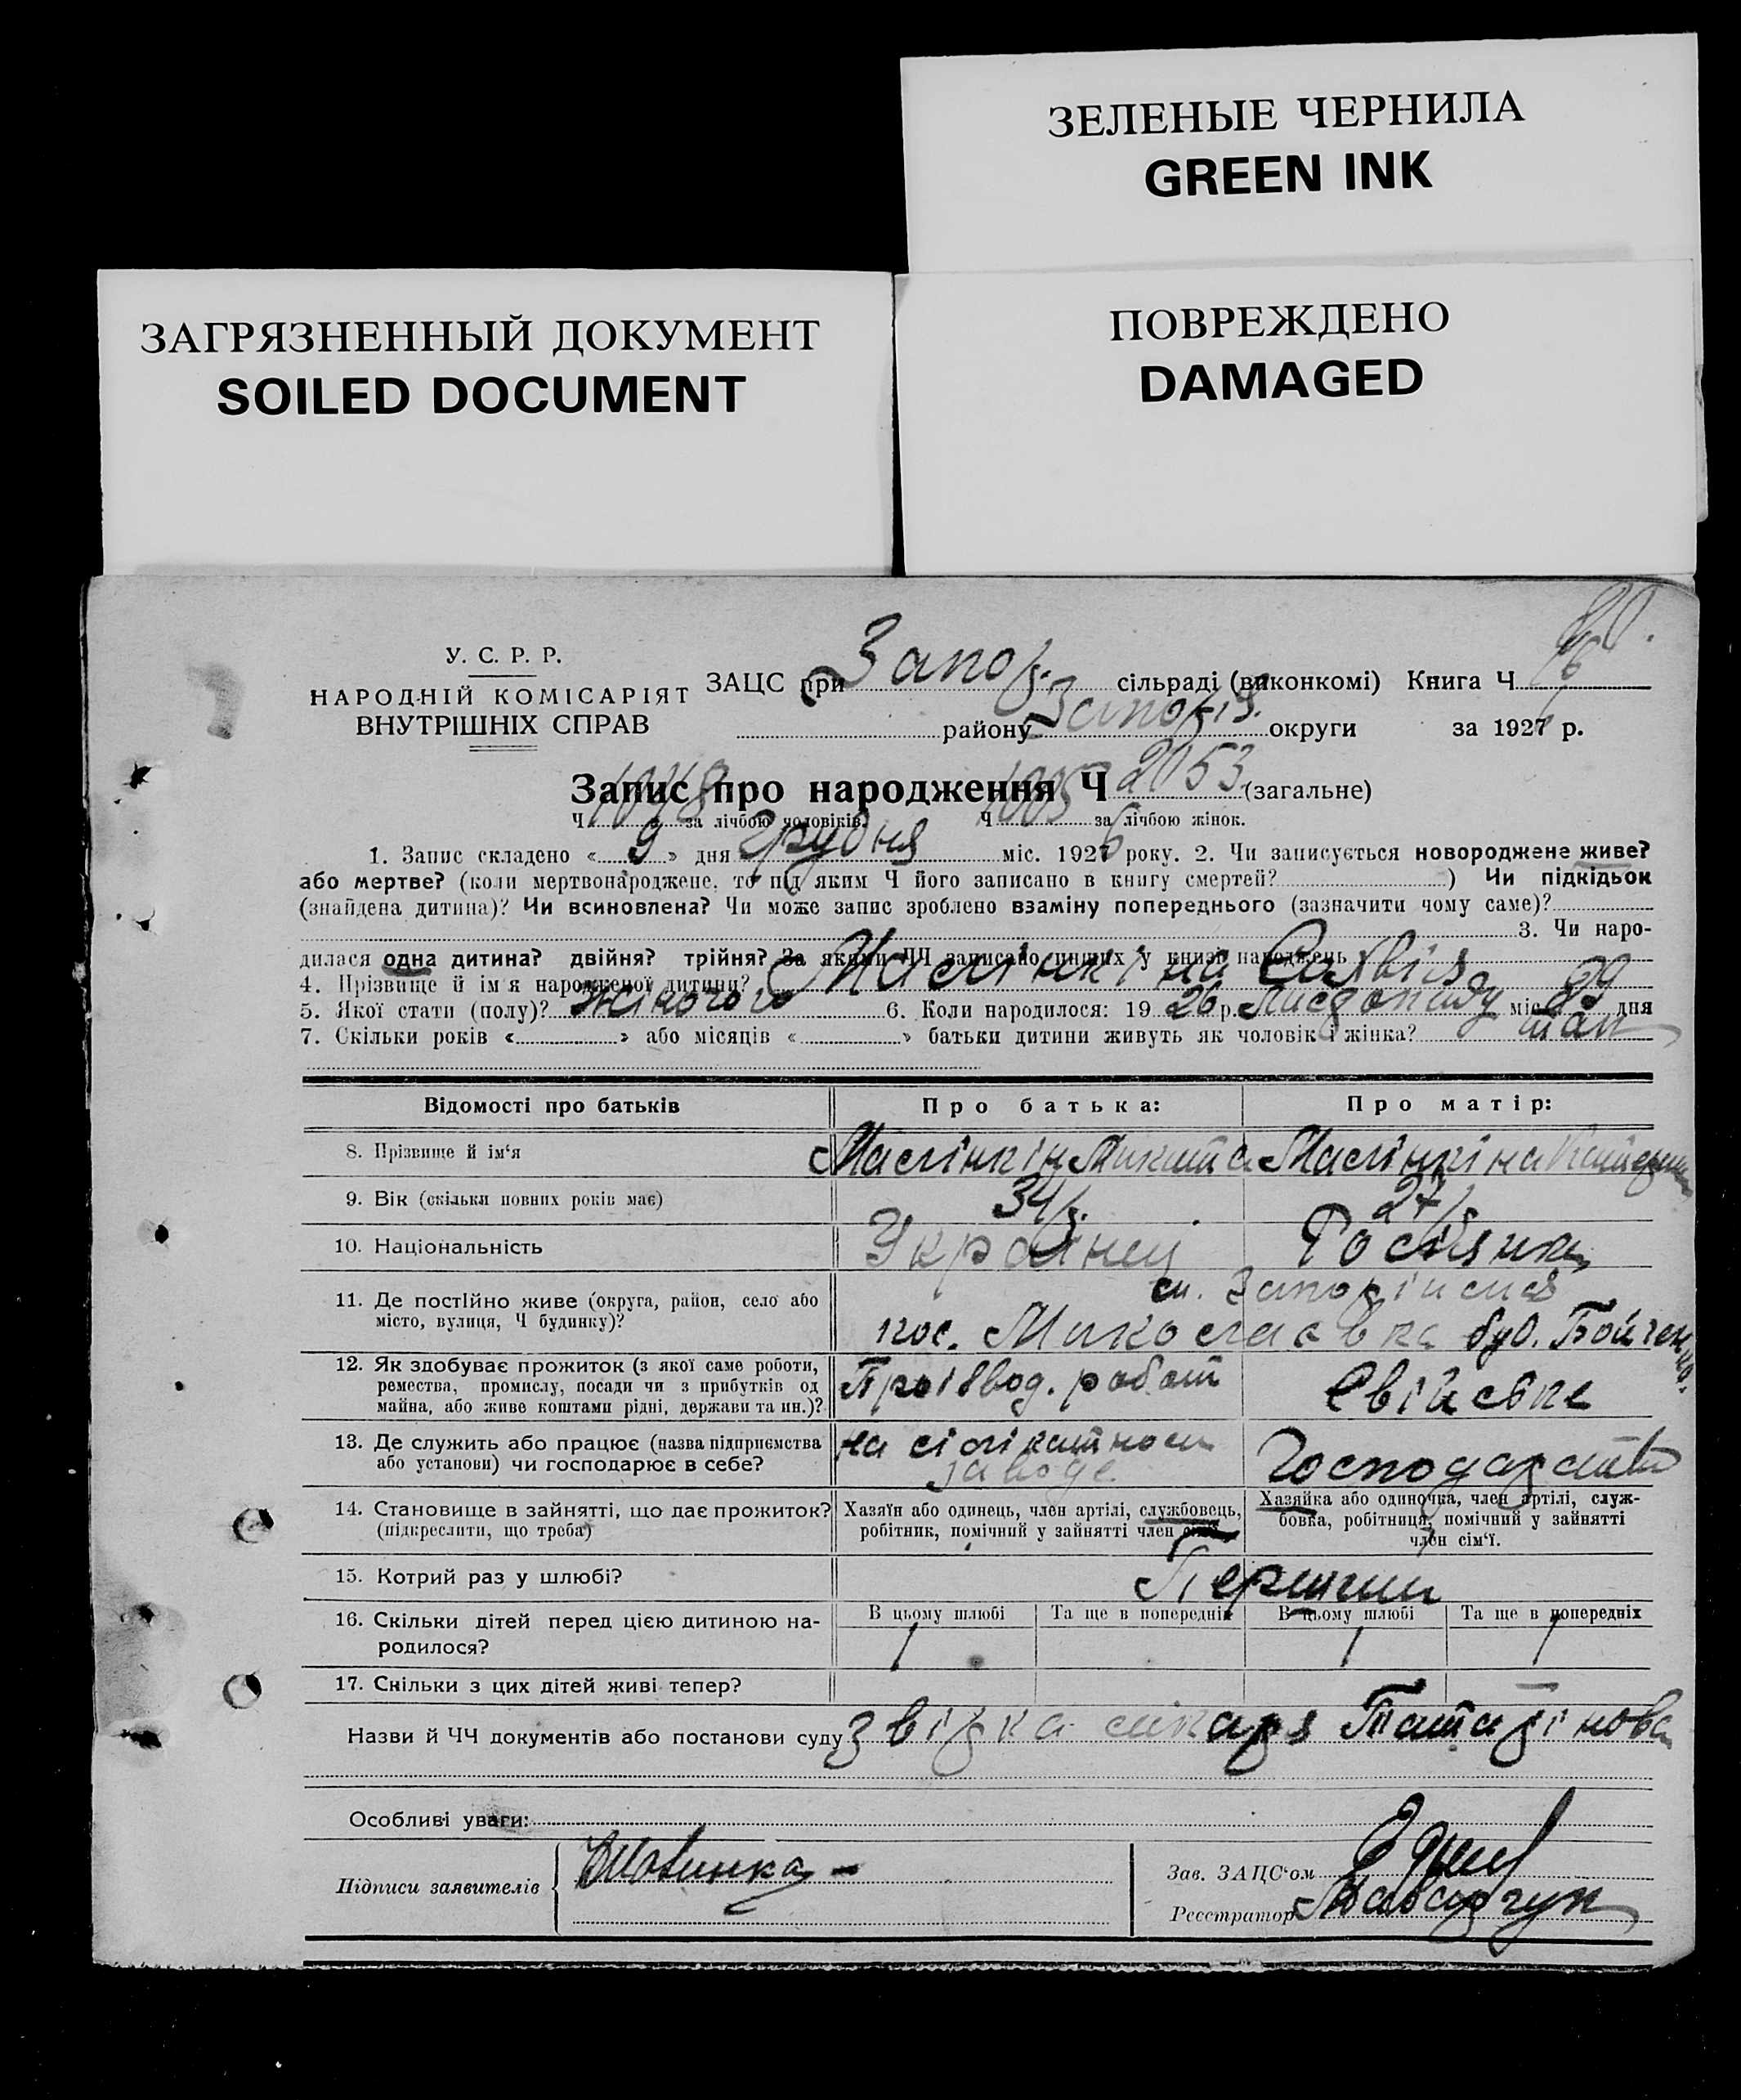 ЗЕЛЕНЫЕ ЧЕРНИЛА
GREEN INK
ЗАГРЯЗНЕННЫЙ ДОКУМЕНТ
SOILED DOCUMENT
ПОВРЕЖДЕНО
DAMAGED
80.
У. С. Р. Р.
НАРОДНІЙ КОМІСАРІЯТ
ВНУТРІШНІХ СПРАВ
ЗАЦС при Запор. сільраді (виконкомі) Книга Ч
району Запоріз. округи за 1927 р.
Запис про народження Ч 2053 (загальне)
Ч 1048 за лічбою чоловіків. Ч 1005 за лічбою жінок.
1. Запис складено « 9 » дня Грудня міс. 1926 року. 2. Чи записується новороджене живе?
або мертве? (коли мертвонароджене, то під яким Ч його записано в книгу смертей? ) Чи підкідьок
(знайдена дитина)? Чи всиновлена? Чи може запис зроблено взаміну попереднього (зазначити чому саме)?
3. Чи наро-
дилася одна дитина? двійня? трійня? За якими ЧЧ записано инших у книзі народжень
4. Прізвище й ім'я народженої дитини? Маслінкіна
5. Якої стати (полу)? жіночого 6. Коли народилося: 19 26 р. Листопаду міс. 29 дня
7. Скільки років « » або місяців « » батьки дитини живуть як чоловік і жінка? так
Відомості про батьків Про батька: Про матір:
8. Прізвище й ім'я Маслінкін Микита Маслінкіна Катерина
9. Вік (скільки повних років має) 34 р. 27 р.
10. Національність Українец Росіянка
11. Де постійно живе (округа, район, село або місто, вулиця, Ч будинку)? ст. Запоріжжя
пос. Миколаевка буд. Бойченко.
12. Як здобуває прожиток (з якої саме роботи, ремества, промислу, посади чи з прибутків од майна, або живе коштами рідні, держави та ин.)? Проізвод. работ Свійське
13. Де служить або працює (назва підприємства або установи) чи господарює в себе? на сілікатном заводе Господарство
14. Становище в зайнятті, що дає прожиток? (підкреслити, що треба) Хазяїн або одинець, член артілі, службовець, робітник, помічний у зайнятті член Хазяйка або одиночка, член артілі, служ-бовка, робітниця, помічний у зайнятті член сім'ї.
15. Котрий раз у шлюбі? Перший
16. Скільки дітей перед цією дитиною на-родилося? В цьому шлюбі 1 Та ще в попередніх В цьому шлюбі 1 Та ще в попередніх 1
17. Скільки з цих дітей живі тепер?
Назви й ЧЧ документів або постанови суду Звірка лікаря
Особливі уваги:
Підписи заявителів
Зав. ЗАЦС'ом
Реєстратор